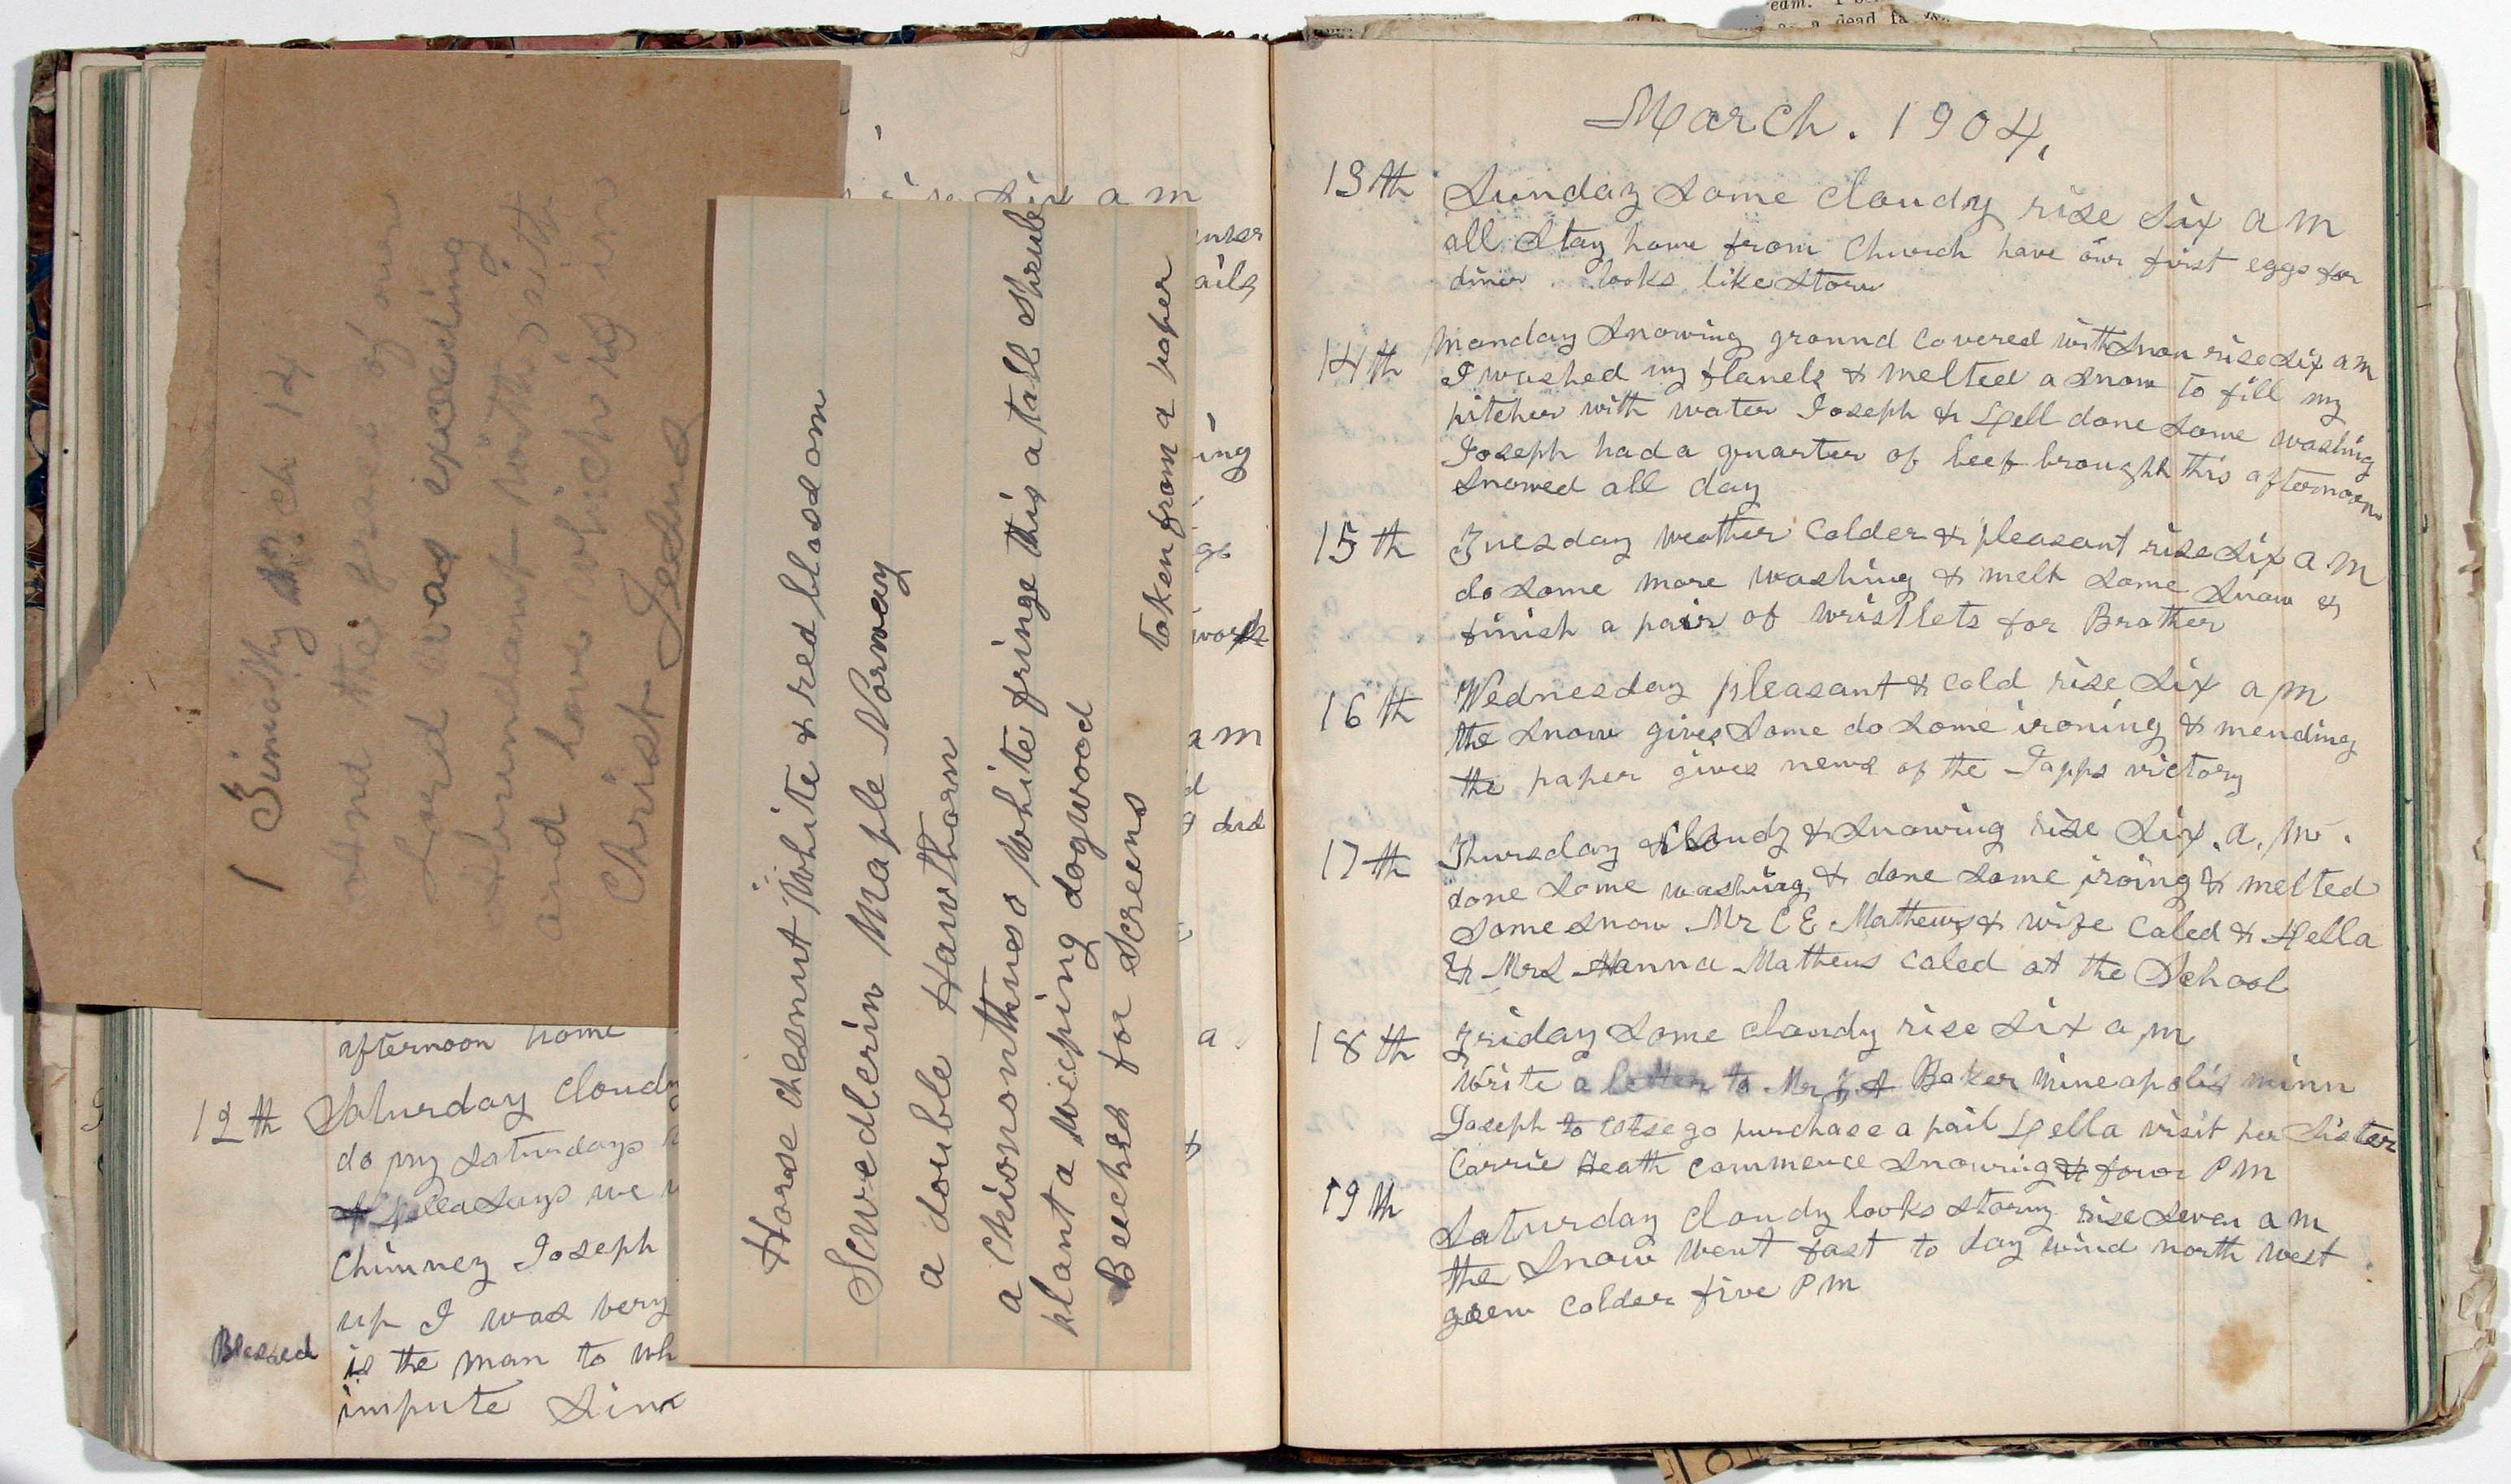 1 Timothy ch 14
And the grace of our
Lord was exceeding
abundant with
and love which is in
Christ Jesus
Horse chesnut White & red blossom
Scwedlerin Maple Norway
a double Hawthorn
a Chiononthus o White fringe this a tall shrub
plant a weeping dogwood
Beeches for Screens
taken from a paper
rise six a m
ing
a m
did
a
afternoon home
12th Saturday cloud
do my saturdays
Lella says we
Chimney Joseph
up I was very
Blessed is the man to wh
impute sin
March. 1904,
13th Sunday some cloudy rise six a m
all stay home from Church have our first eggs for
diner looks like storm
14th Monday snowing ground covered with snow rise six a m
I washed my flanels & melted a snow to fill my
pitcher with water Joseph & Lell done some washing
Joseph had a quarter of beef brought this afternoon
snowed all day
15th Tuesday weather colder & pleasant rise six a m
do some more washing & melt some snow &
finish a pair of wristlets for Brother
16th Wednesday pleasant & cold rise six a m
the snow gives some do some ironing & mending
the paper gives news of the Japps victory
17th Thursday cloudy & snowing rise six. a. m.
done some washing & done some iroing & melted
some snow Mr C E Mathews & wife caled & Lella
& Mrs Hanna Matheus caled at the School
18th Friday some cloudy rise six a m
Write a letter to Mr Baker Mineapolis minn
Joseph to Otsego purchase a pail Lella visit her Sister
Carrie Heath commence snowing four P M
19th Saturday cloudy looks stormy rise seven a m
the snow went fast to day wind north west
grew colder five P M